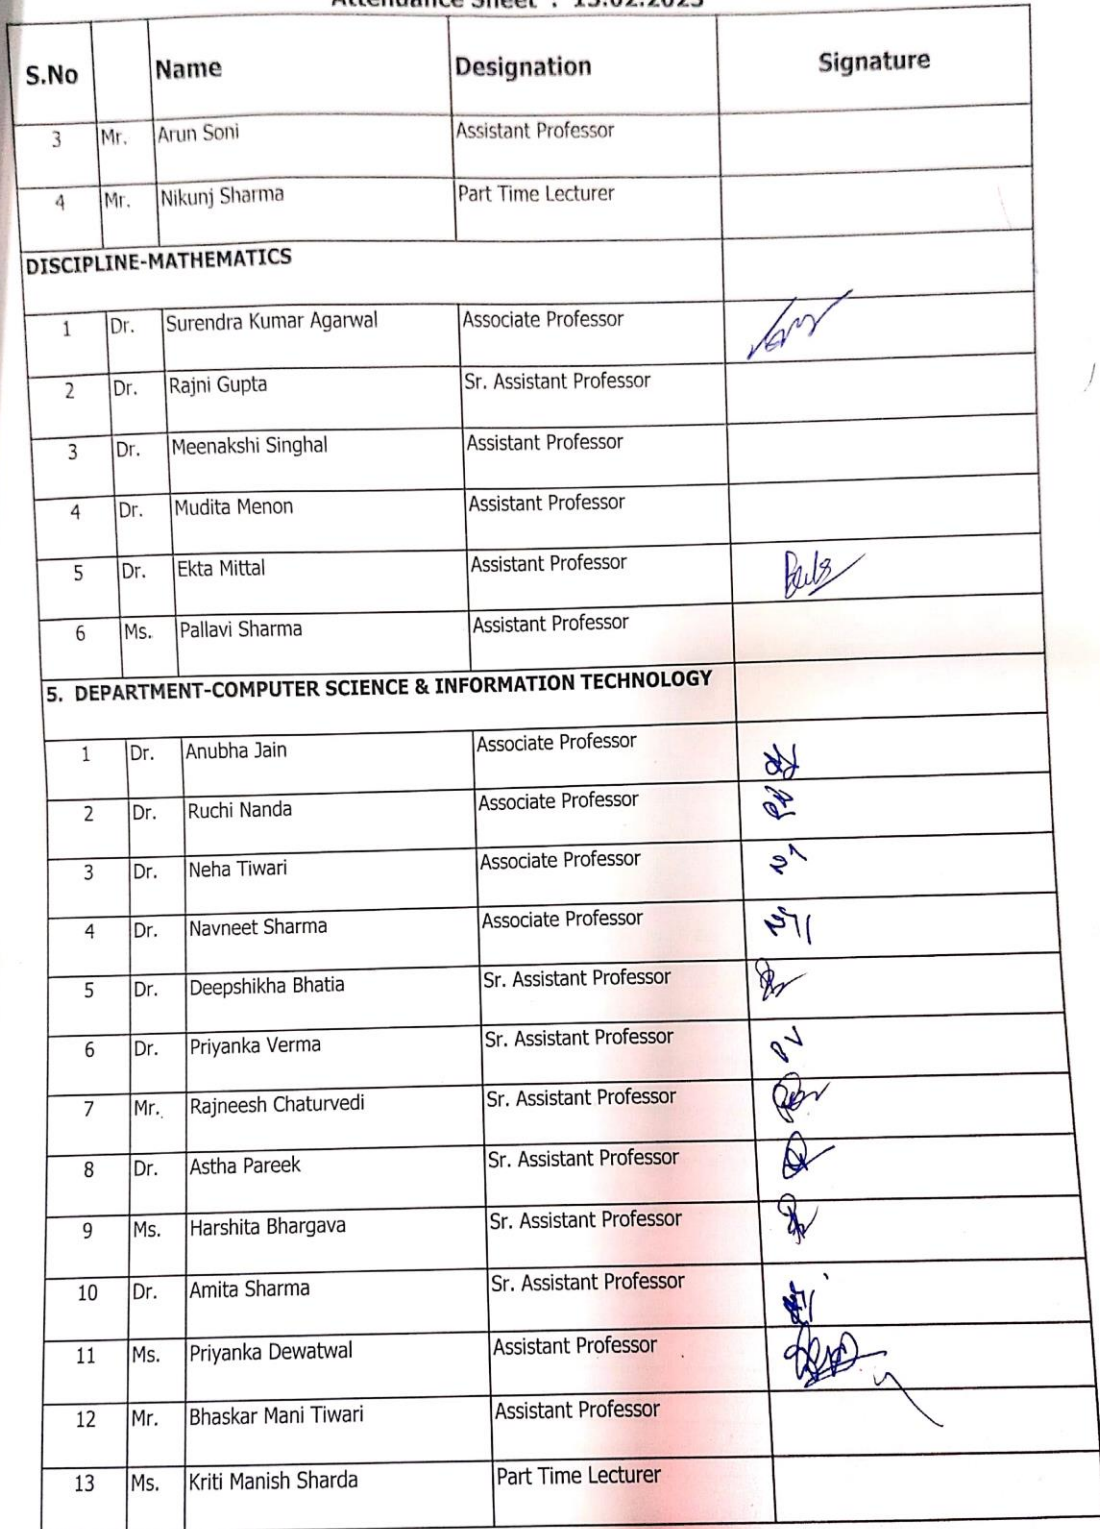 Attendance Sheet : 15.02.2023
S.No Name Designation Signature
3 Mr. Arun Soni Assistant Professor
4 Mr. Nikunj Sharma Part Time Lecturer
DISCIPLINE-MATHEMATICS
1 Dr. Surendra Kumar Agarwal Associate Professor
2 Dr. Rajni Gupta Sr. Assistant Professor
3 Dr. Meenakshi Singhal Assistant Professor
4 Dr. Mudita Menon Assistant Professor
5 Dr. Ekta Mittal Assistant Professor
6 Ms. Pallavi Sharma Assistant Professor
5. DEPARTMENT-COMPUTER SCIENCE & INFORMATION TECHNOLOGY
1 Dr. Anubha Jain Associate Professor
2 Dr. Ruchi Nanda Associate Professor
3 Dr. Neha Tiwari Associate Professor
4 Dr. Navneet Sharma Associate Professor
5 Dr. Deepshikha Bhatia Sr. Assistant Professor
6 Dr. Priyanka Verma Sr. Assistant Professor PV
7 Mr. Rajneesh Chaturvedi Sr. Assistant Professor
8 Dr. Astha Pareek Sr. Assistant Professor
9 Ms. Harshita Bhargava Sr. Assistant Professor
10 Dr. Amita Sharma Sr. Assistant Professor
11 Ms. Priyanka Dewatwal Assistant Professor
12 Mr. Bhaskar Mani Tiwari Assistant Professor
13 Ms. Kriti Manish Sharda Part Time Lecturer